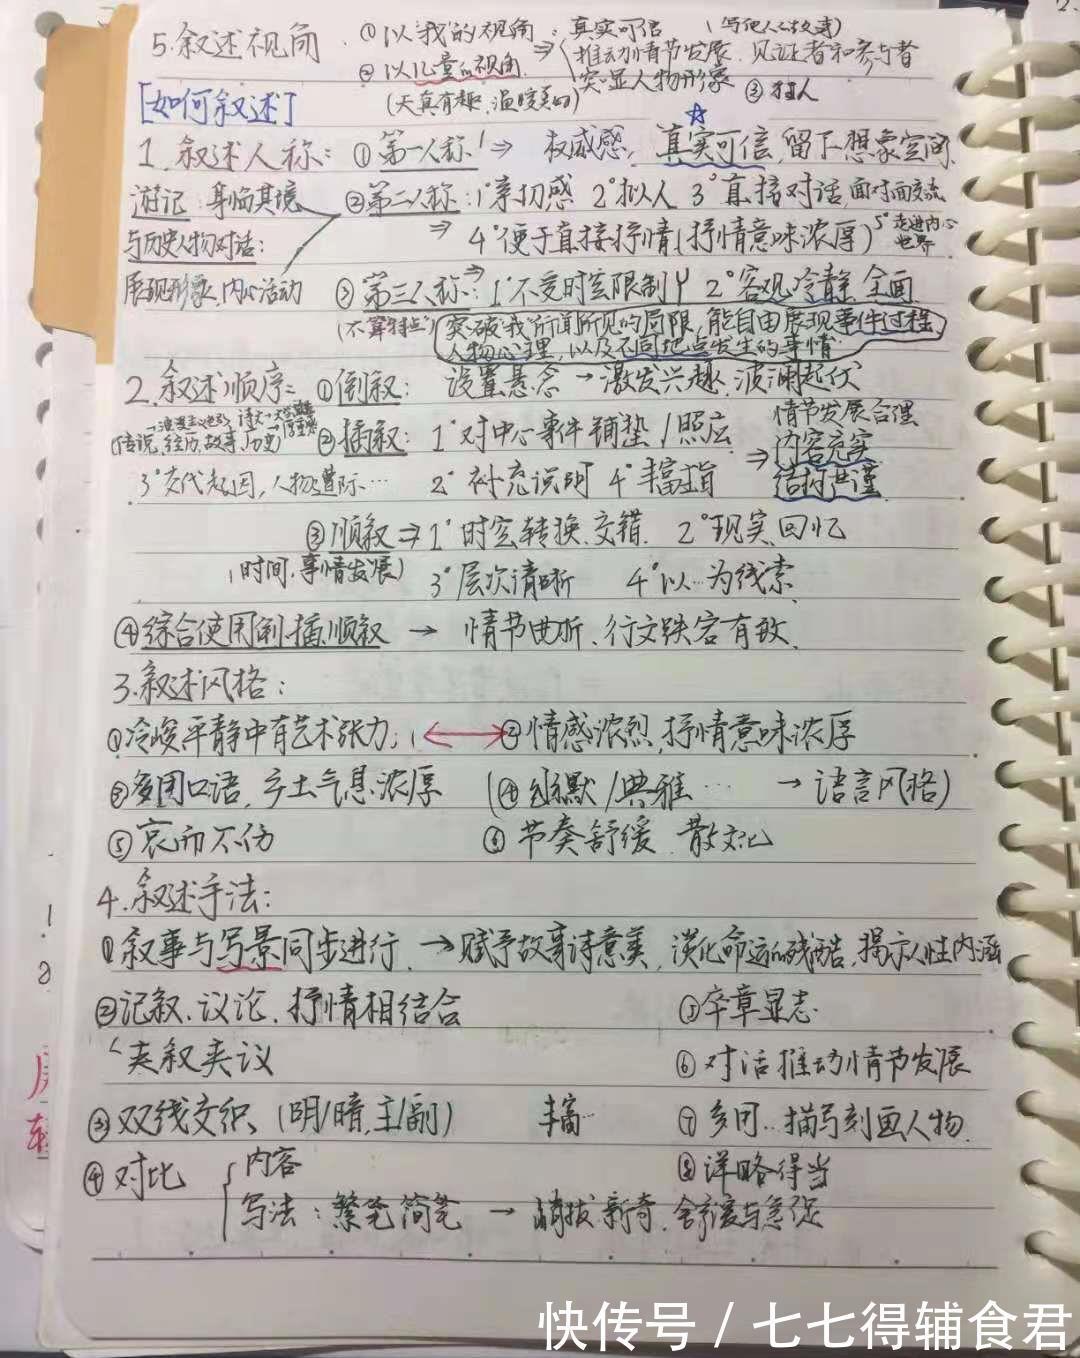 5.叙述视角 ①以'我'的视角:真实可信 (写他人故事)
②以儿童的视角 ⇒ 推动情节发展 见证者和参与者
(天真有趣、温暖美好) 突显人物形象 ③狂人
[如何叙述]
1.叙述人称: ①第一人称 ⇒ 权威感, 真实可信, 留下想象空间
游记:身临其境 ②第二人称:1°亲切感 2°拟人 3°直接对话,面对面交流
与历史人物对话: ⇒ 4°便于直接抒情(抒情意味浓厚) 5°走进内心世界
展现形象、内心活动 ③第三人称: 1°不受时空限制 2°客观冷静、全面
(不算特点) 突破'我'所闻所见的局限,能自由展现事件过程、
人物心理,以及不同地点发生的事情
2.叙述顺序: ①倒叙: 设置悬念→激发兴趣、波澜起伏
(传说,经历,故事,历史) ②插叙: 1°对中心事件铺垫/照应 ⇒ 情节发展合理
内容充实
3°交代起因,人物遭际… 2°补充说明 4°丰富主旨 结构严谨
③顺叙⇒1°时空转换、交错. 2°现实、回忆
(时间、事情发展) 3°层次清晰 4°以…为线索
④综合使用倒、插、顺叙 → 情节曲折、行文跌宕有致.
3.叙述风格:
①冷峻平静中有艺术张力; ⟷ ②情感浓烈,抒情意味浓厚
③多用口语,乡土气息浓厚 (④幽默/典雅… →语言风格)
⑤哀而不伤 ⑥节奏舒缓、散文化
4.叙述手法:
①叙事与写景同步进行. →赋予故事诗意美,淡化命运的残酷,揭示人性内涵
②记叙、议论、抒情相结合 ⑤卒章显志
夹叙夹议 ⑥对话推动情节发展
③双线交织、(明/暗,主/副) 丰富… ⑦多用…描写刻画人物.
④对比 { 内容 ⑧详略得当
写法:繁笔简笔 → 峭拔新奇,舒缓与急促
快传号 / 七七得辅食君